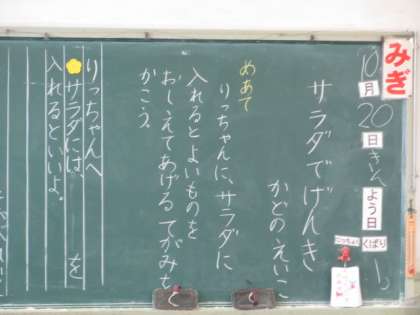 みぎ
10月20日きんよう日
にっちょく
くばり
サラダでげんき
かどのえいこ
めあて
りっちゃんに、サラダに
入れるとよいものを
おしえてあげるてがみを
かこう。
りっちゃんへ
サラダには、　を
入れるといいよ。